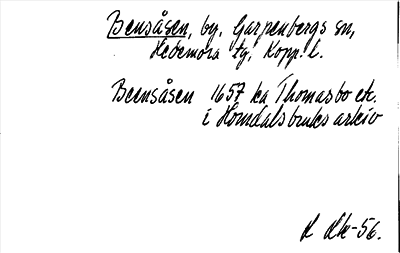 Bensåsen, by, Garpenbergs sn,
Hedemora tg, Kopp. l.
Beensåsen 1657 ka Thomasbo etc.
i Horndalsbruks arkiv